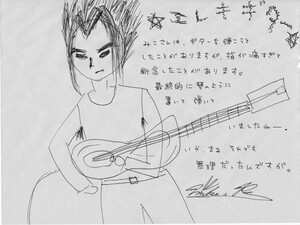 ☆エレキギター☆
みこさんは、ギターを弾こうと
したことがありますが、指が痛すぎて
断念したことがあります。
最終的に琴んように
置いて弾いて
いましたねー。
いや、まぁ それでも
無理だったんですが。